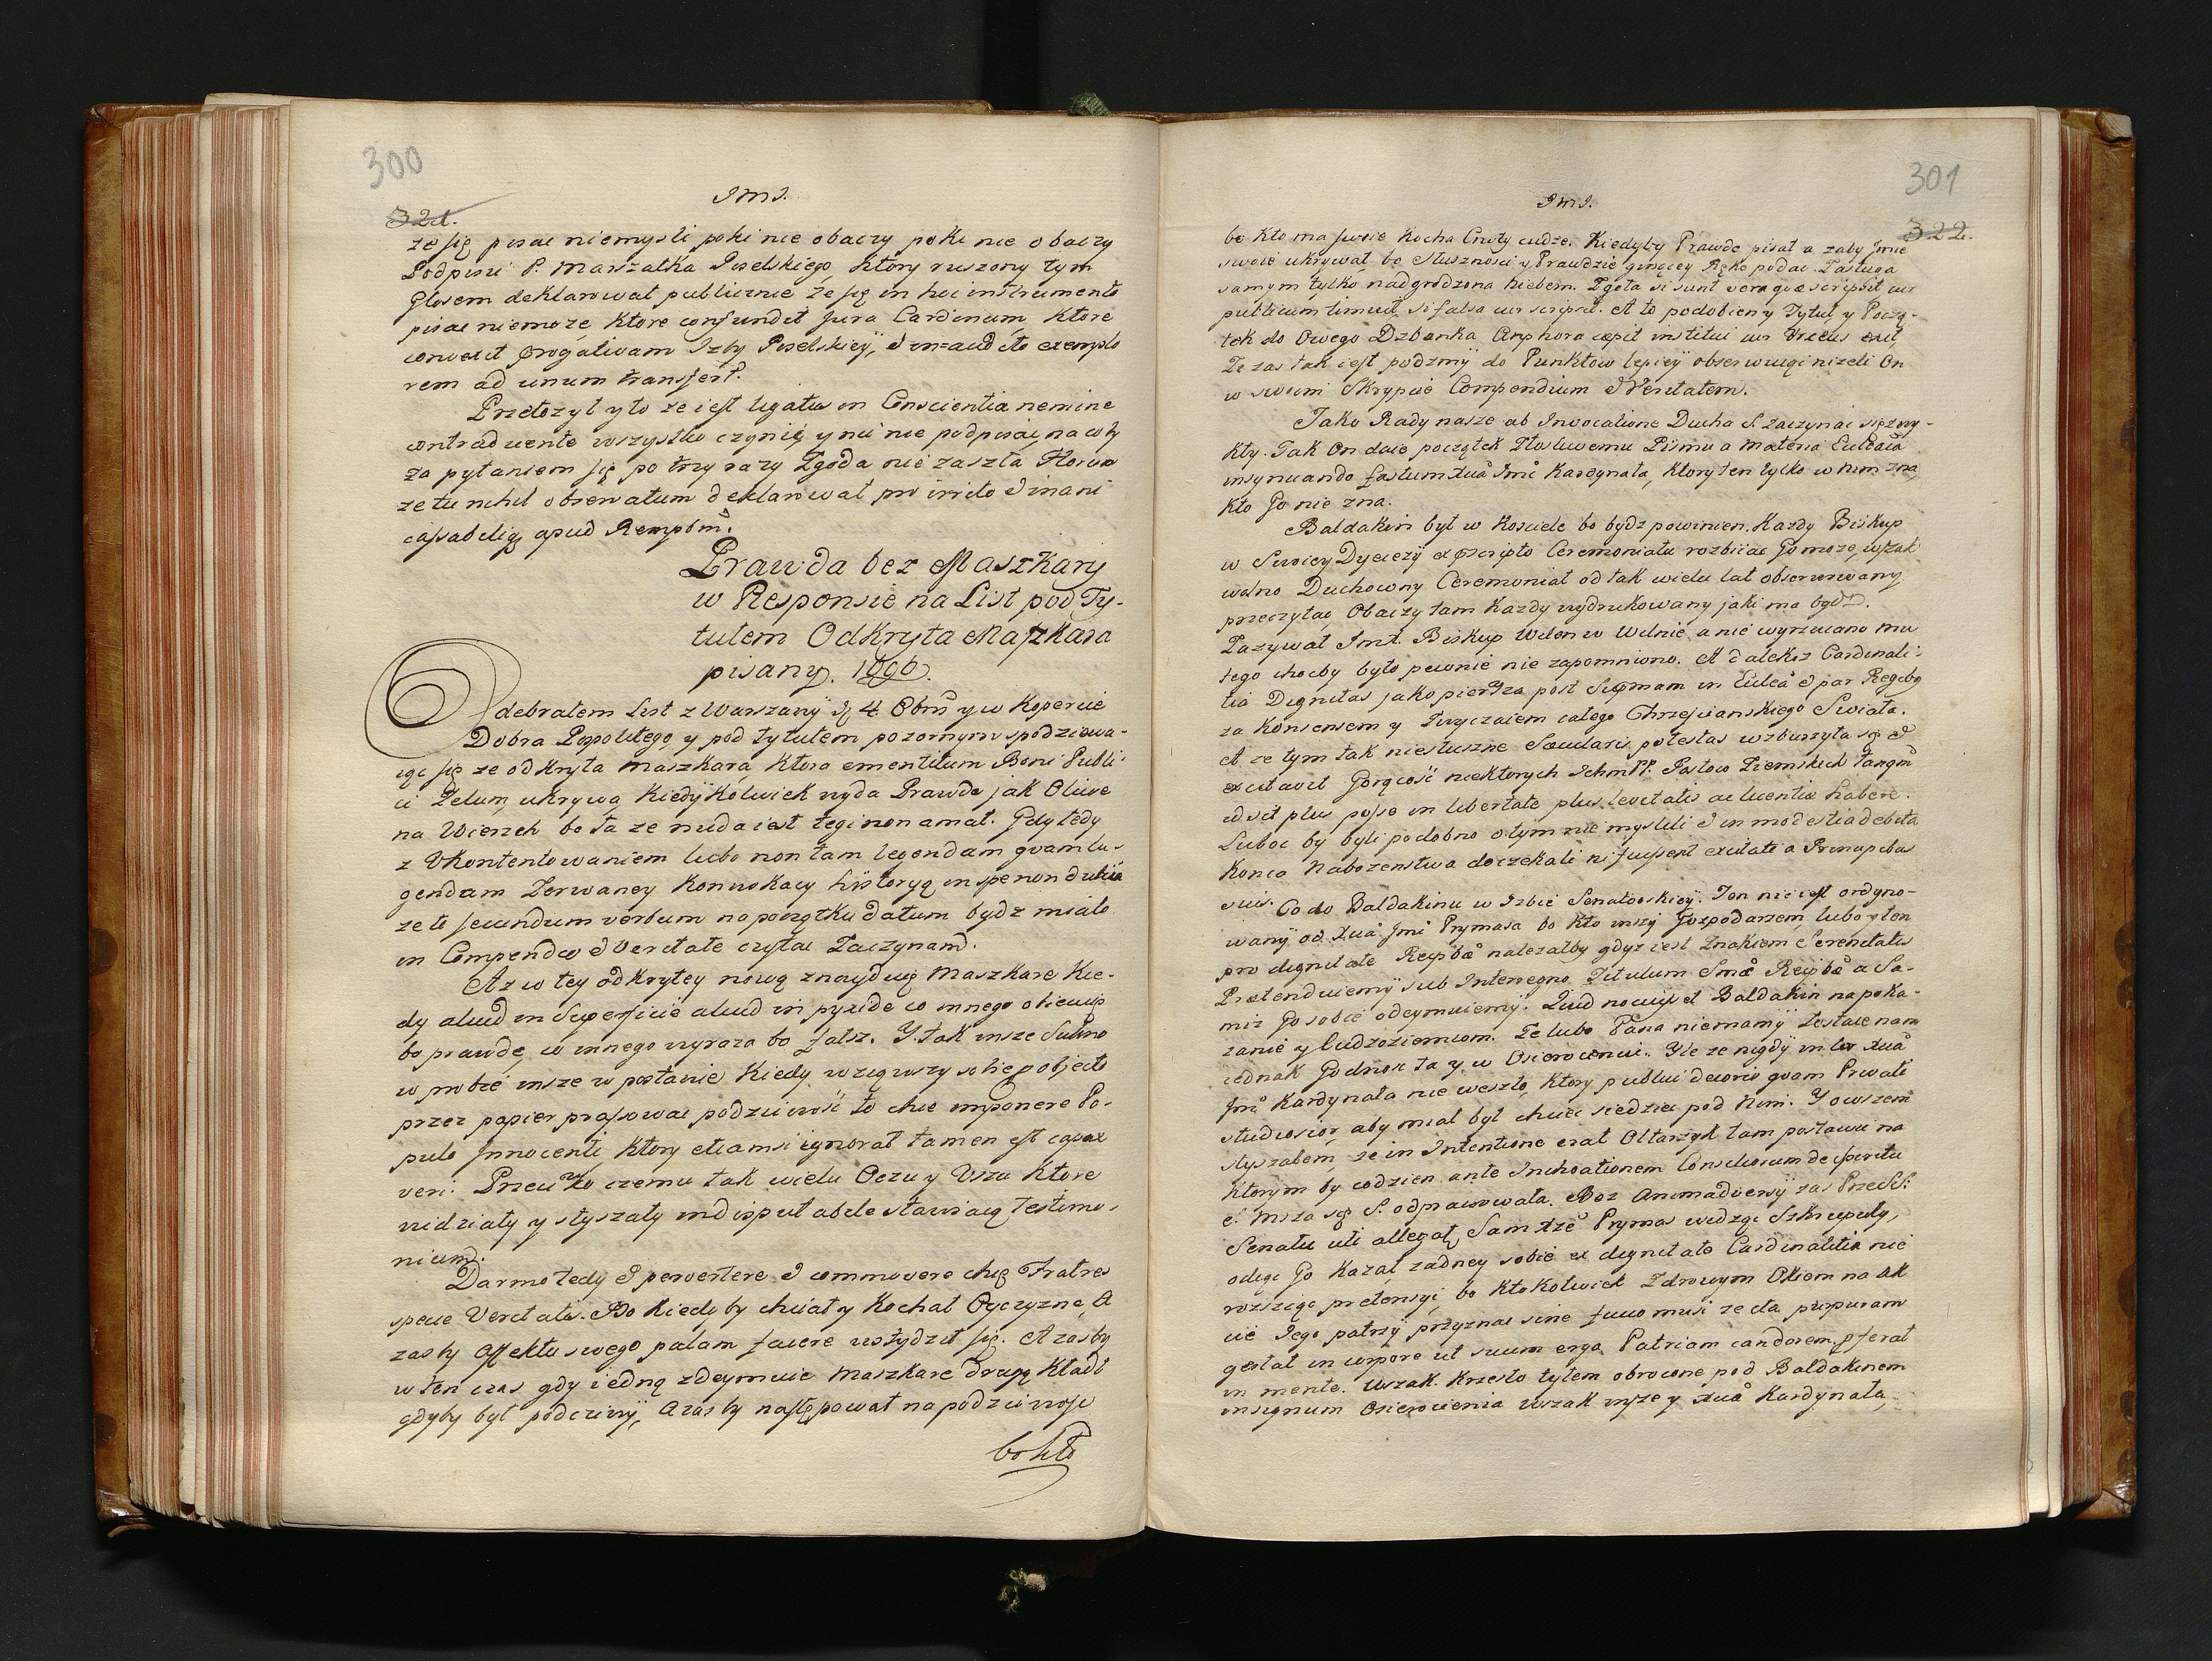 300
JmJ.
321.
że się pisać niemysli poki nie obaczy poki nie obaczy
Podpisu P. Marszałka Poselskiego, który ruszony tym
Głosem deklarował publicznie że się in hoc instrumento
pisać niemoże które confundit Jura Cardinum, które
convexit prærogativam Izby Poselskiey, & in=audito exemplo
rem ad unum transfert.
Przełozył y to że iest ligatus in Conscientia nemine
contradicente wszystko czynić y nic nie podpisać, na co by
za pytaniem się po trzy razy Zgoda nie zaszła
że tu nihil observatum deklarował pro irrito & inani
cassabilig apud Rempbm.
Prawda bez Maszkary
w Responsie na List pod Ty-
tułem Odkryta Maszkara
pisany. 1696.
Odebrałem List z Warszawy d. 4. Obris y w Kopercie
Dobra Pospolitego, y pod tytułem pozornym spodziewa-
iąc się że odkryta maszkara, która ementitum Boni Publi-
ci Zelum, ukrywa, kiedyżkolwiek wyda Prawdę jak Oliwę
na Wierzch bo ta że nuda iest tegi non amat. Gdy tedy
z Ukontentowaniem lubo non tam legendam quam lu-
gendam Zerwaney Konwokacy historyą in spe non dubia
że to secundum verbum na początku datum bydź miało
in Compendio & Veritate czytać Zaczynam.
Aż w tey odkrytey nową znayduię Maszkarę Kie-
dy aliud in Superficie aliud in pyxide co innego obiecuię
bo prawdę, co innego wyraża bo fałsz. Y tak insze Sukno
w probie insze w postawie Kiedy wziąwszy sobie pro objecto
przez papier prasować podźciwość to chce imponere Po-
pulo Innocenti który etiamsi ignorat tamen est capax
veri. Przeciwko czemu tak wielu Oczu y Uszu które
widziały y słyszały indisputabile stawiaią Testimo-
nium.
Darmo tedy & pervertere & commovere chcę Fratres
specie Veritatis. Bo kiedy by chciał y Kochał Oyczyznę, A
zasby Affektu swego palam facere wstydził się. A zasby
w ten czas gdy iedną zdeymuie Maszkarę drugą kładł
gdyby był podcziwy, A zasby następował na podzciwość
bo kto

301
JmJ.
322.
bo kto ma swoie kocha Cnoty cudze. Kiedyby Prawdę pisał a zaby Imie
swoie ukrywał, bo słuszności y Prawdzie ginącey Rękę podać. Zasługa
samym tylko nadgrodzona Niebem. Zgoła si sunt vera quæ scripsit cur
publicum timuit, si falsa cur scripsit. A to podobieny Tytuł y Począ-
tek do Owego Dzbanka Amphora cæpit institui cur Urceus exit,
Że zas tak iest podźmy do Punktow lepiey obserwuiąc nizeli On
w swoim Skrypcie Compendium & Veritatem.
Jako Rady nasze ab Invocatione Ducha S. zaczynać się zwy-
kły. Tak On daie początek Złosliwemu Pismu a materia Eccleâa
insynuando fastum Xuâ Jmci Kardynała, który ten tylko w nim zna,
kto Go nie zna.
Baldakin był w Kosciele bo bydź powinien. Kazdy Biskup
w Swoiey Dyecezy ex præscripto Ceremoniału rozbiiać Go moze, wszak
wolno Duchowny Ceremoniał od tak wielu lat obserwowany
przeczytać, Obaczy tam Kazdy wydrukowany jaki ma bydź.
Zazywał Jmć Biskup Wilen: w Wilnie a nie wyrzucano mu
tego choćby było pewnie nie zapomniono. A dalekoż Cardinali-
tia Dignitas jako pierwsza post Supremam in Eccleâ & par Regibg
za Konsensem y Zwyczaiem całego Chrzesciańskiego Świata.
A że tym tak niesłusznie Sæcularis potestas wzburzyła się &
excitavit Gorącość niektorych Ichmść PP. Posłow Ziemskich tanqm
id sit plus posse in libertate plus levitatis ac licentiæ habere.
Luboć by byli podobno o tym nie mysleli & in modestia debita
Konca Nabozenstwa doczekali ni fuissent excitati a Principibus
suis. Co do Baldakinu w Izbie Senatorskiey. Ten nie iest ordyno-
wany od Xuâ Jmci Prymasa bo kto inszy Gospodarzem, lubo y ten
pro dignitate Reipbæ nalezałby gdyż iest Znakiem Serenitatis
Prætenduiemy sub Interregno Titulum Smæ Reipbæ a Sa-
miż Go sobie odeymuiemy. Quid novi et Baldakin na poka-
zanie y Cudzoziemcom. Ze lubo Pana niemamy zostaie nam
iednak Godność ta y w Osieroceniu. Ale że nigdy in lor Xuâ
Jmci Kardynała nie weszło, który publici decoris quam Privati
studiosior, aby miał był chcieć siedzieć pod Nim. Y owszem
słyszałem, że in Intentione erat Ołtarzyk tam postawić na
którym by codzień ante Inchoationem Consiliorum de spiritu
S. Msza się S. odprawowała. Bez Animadversy zas PrzeSS:
Senatu uti allegat, Sam Xże Prymas widząc Szkrupuły,
odiąć Go Kazał zadney sobie ex dignitate Cardinalitia nie
roszcząc pretensyi, bo ktokolwiek Zdrowym Okiem na ak
cie Jego patrzy przyznać sine fuco musi że ita purpuram
gestat in corpore ut suum erga Patriam candorem, præferat
in mente. Wszak krzesło tyłem obrocone pod Baldakinem
insignum Osierocenia wszak insze y Xuâ Kardynała,